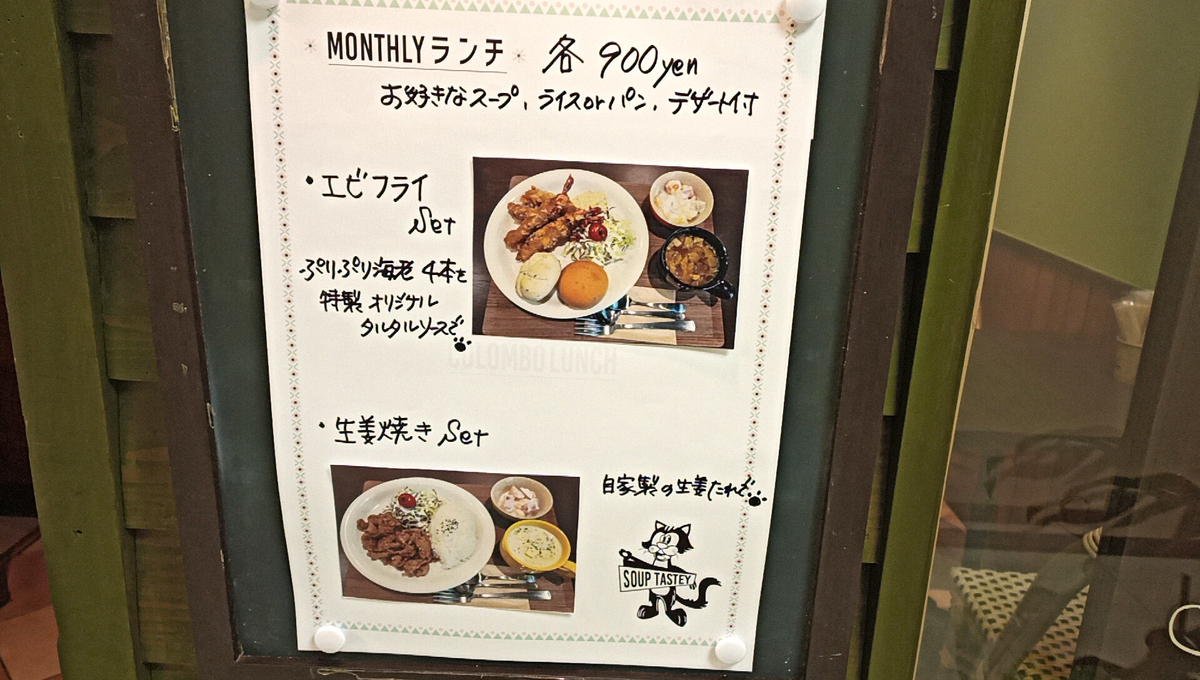 MONTHLYランチ 各 900yen
お好きなスープ、ライスorパン、デザート付
・エビフライ
Set
ぷりぷり海老 4本を
特製 オリジナル
タルタルソースで
COLOMBO LUNCH
・生姜焼き Set
自家製の生姜たれで
SOUP TASTEY